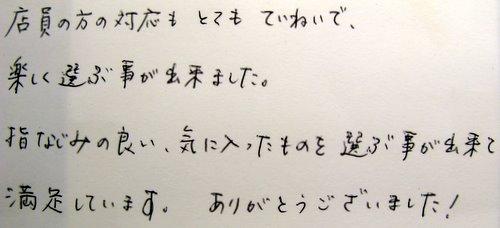 店員の方の対応も とても ていねいで、
楽しく選ぶ事が出来ました。
指なじみの良い、気に入ったものを 選ぶ事が出来て
満足しています。 ありがとうございました!